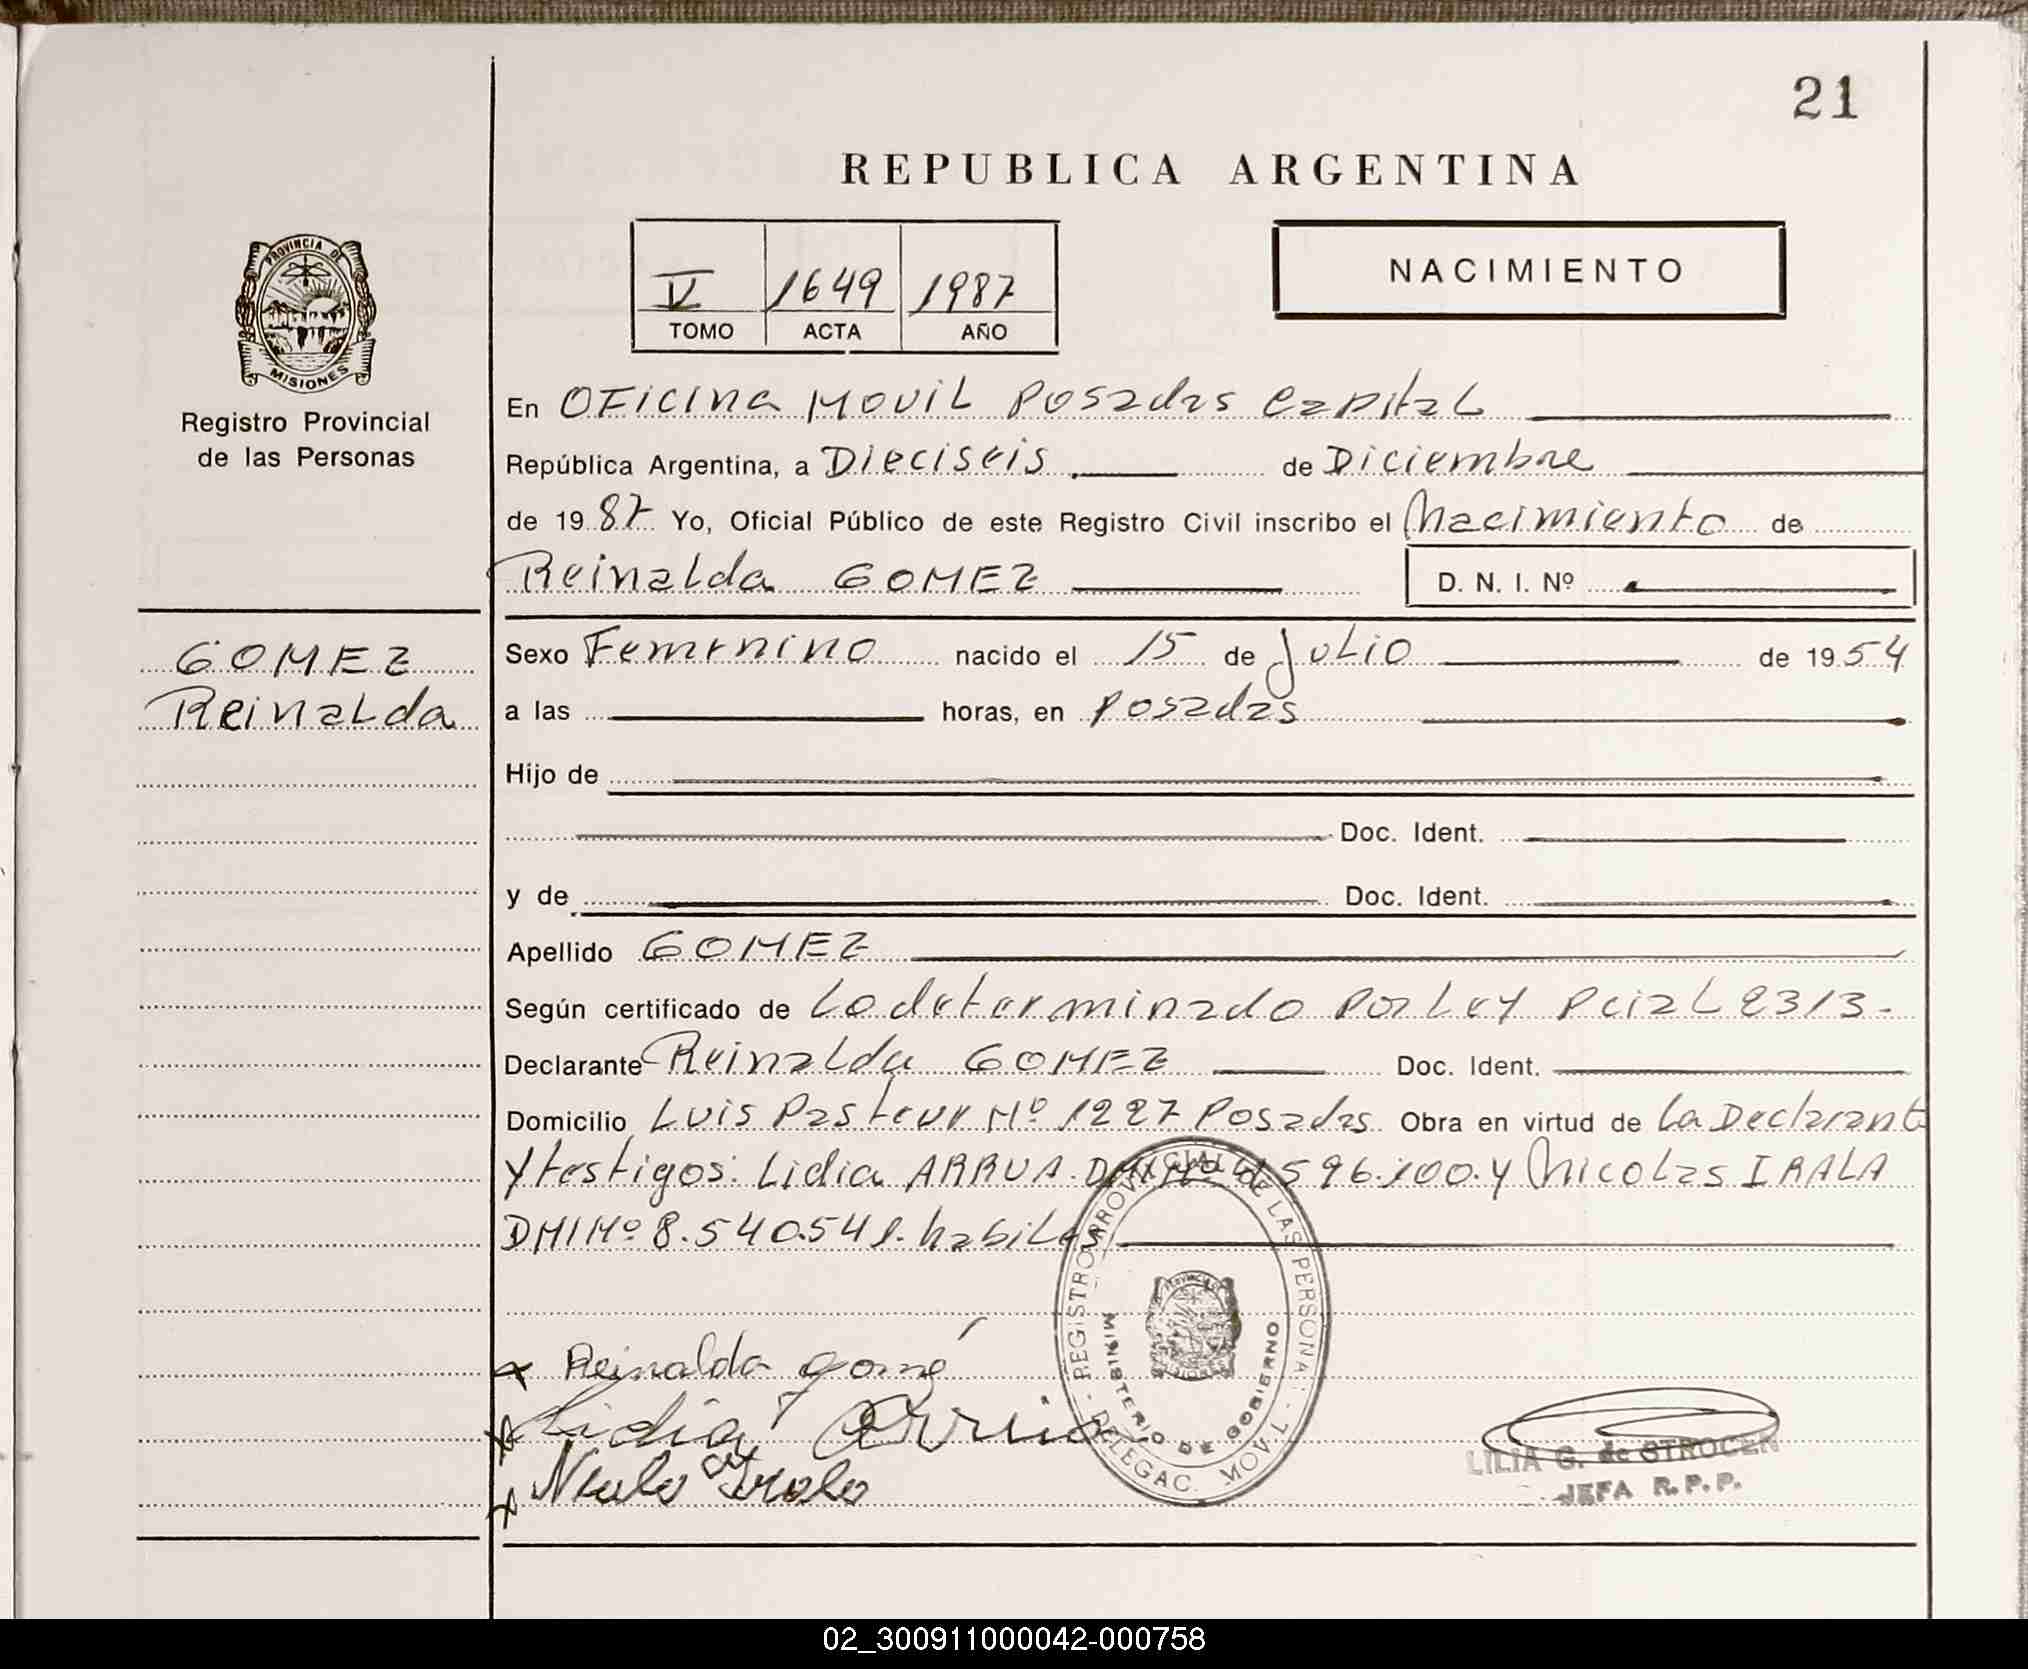 21
REPUBLICA ARGENTINA
V 1649 1987
TOMO ACTA AÑO
NACIMIENTO
PROVINCIA DE
MISIONES
Registro Provincial
de las Personas
En OFicina Movil Posadas Capital
República Argentina, a Dieciseis de Diciembre
de 19 87 Yo, Oficial Público de este Registro Civil inscribo el Nacimiento de
Reinalda GOMEZ D. N. I. Nº
GOMEZ
Reinalda
Sexo Femenino nacido el 15 de Julio de 19 54
a las horas, en Posadas
Hijo de
Doc. Ident.
y de Doc. Ident.
Apellido GOMEZ
Según certificado de Lo determinado Por Ley Pcial 2313.
Declarante Reinalda GOMEZ Doc. Ident.
Domicilio Luis Pasteur Nº 1227 Posadas Obra en virtud de La Declarante
y testigos: Lidia ARRUA. DNI Nº 596.100. y Nicolas IRALA
DNI Nº 8.540.541. habiles
REGISTRO PROVINCIAL DE LAS PERSONAS
MINISTERIO DE GOBIERNO
DELEGAC. MOVIL
x Reinalda gomé
x Lidia Arrua
x Irala
LILIA G. de STROCEN
JEFA R.P.P.
02_300911000042-000758